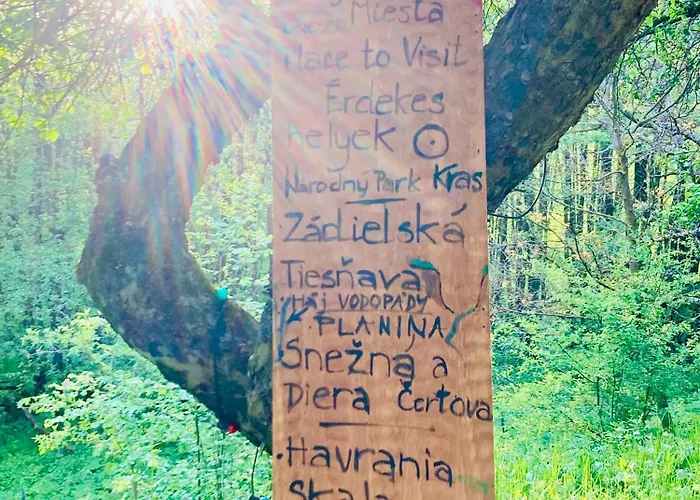 Miesta
Place to Visit
Érdekes
helyek
Narodny Park Kras
Zádielská
Tiesňava
Háj VODOPÁDY
PLANINA
Snežná a
Diera Čertova
Havrania
Skala